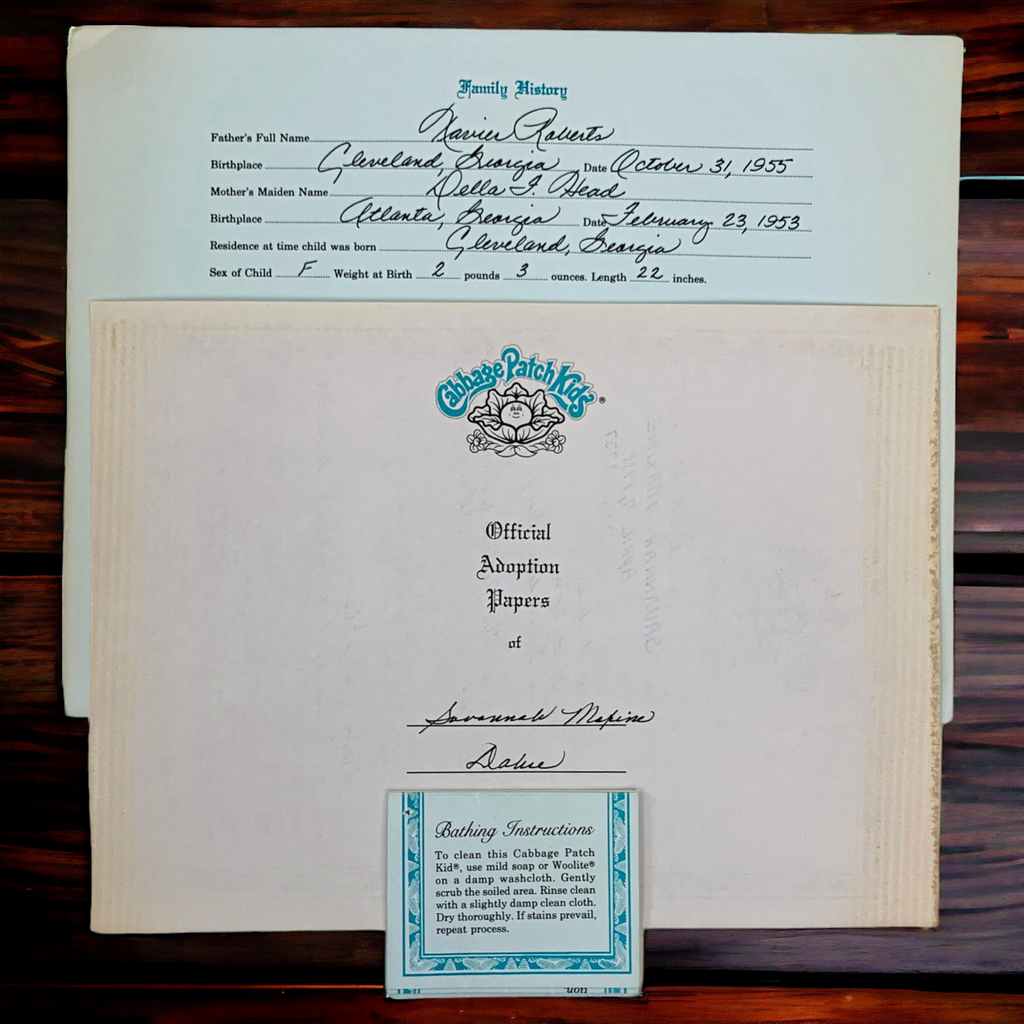 Family History
Father's Full Name Xavier Roberts
Birthplace Cleveland, Georgia Date October 31, 1955
Mother's Maiden Name Della F. Head
Birthplace Atlanta, Georgia Date February 23, 1953
Residence at time child was born Cleveland, Georgia
Sex of Child F Weight at Birth 2 pounds 3 ounces. Length 22 inches.
Cabbage Patch Kids®
Official
Adoption
Papers
of
Savannah Maxine
Bathing Instructions
To clean this Cabbage Patch
Kid®, use mild soap or Woolite®
on a damp washcloth. Gently
scrub the soiled area. Rinse clean
with a slightly damp clean cloth.
Dry thoroughly. If stains prevail,
repeat process.